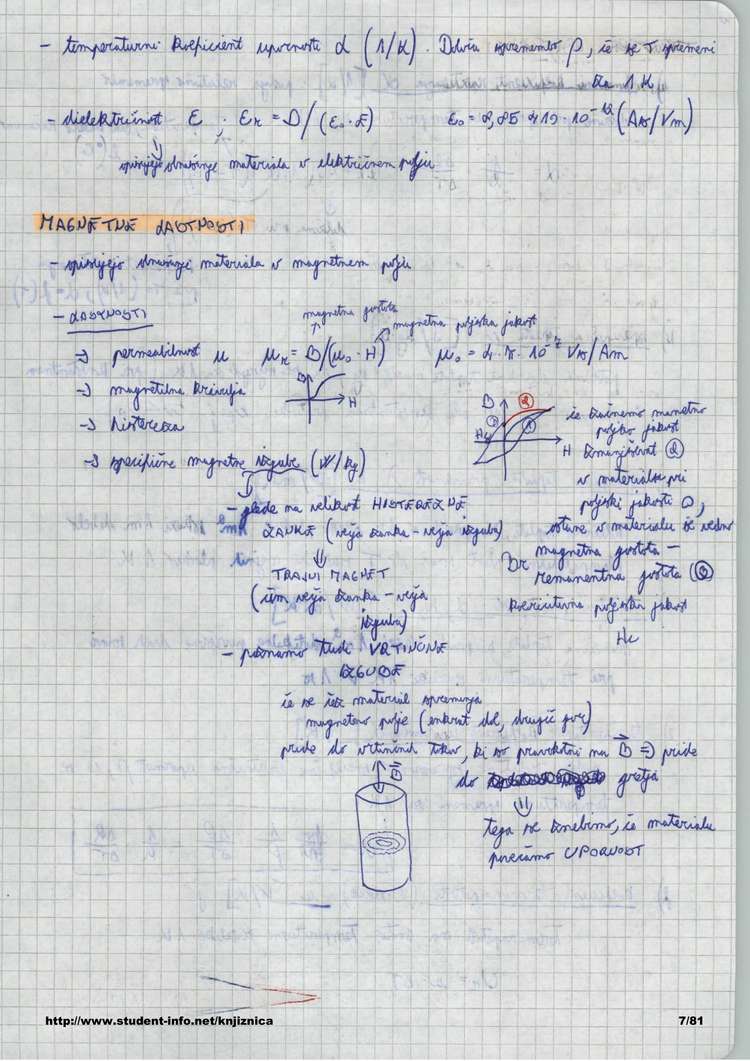 - temperaturni koeficient upornosti α (1/K). Določa spremembo ρ, če se T spremeni
za 1 K
- dielektričnost ε ; εr = D/(ε0·E) ε0 = 8,85 · 10^-12 (As/Vm)
opisujejo obnašanje materiala v električnem polju
MAGNETNE LASTNOSTI
- opisujejo obnašanje materiala v magnetnem polju
- LASTNOSTI
magnetna gostota
magnetna poljska jakost
→ permeabilnost μ μr = B/(μ0·H) μ0 = 4·π·10^-7 Vs/Am
→ magnetilna krivulja
B
H
→ histereza
→ specifične magnetne izgube (W/kg)
- glede na velikost HISTEREZNE
ZANKE (večja zanka - večja izguba)
⇓
TRAJNI MAGNET
(čim večja zanka - večja
izguba)
B
②
①
Hc
H
če začnemo magnetno
poljsko jakost
zmanjševat ②
v materialu pri
poljski jakosti 0,
ostane v materialu še vedno
magnetna gostota -
Br remanentna gostota
koercitivna poljska jakost
Hc
- poznamo tudi VRTINČNE
IZGUBE
če se čez material spreminja
magnetno polje (enkrat dol, drugič gor)
pride do vrtinčnih tokov, ki so pravokotni na B ⇒ pride
do gretja
B
⇓
tega se znebimo, če materialu
povečamo UPORNOST
http://www.student-info.net/knjiznica 7/81